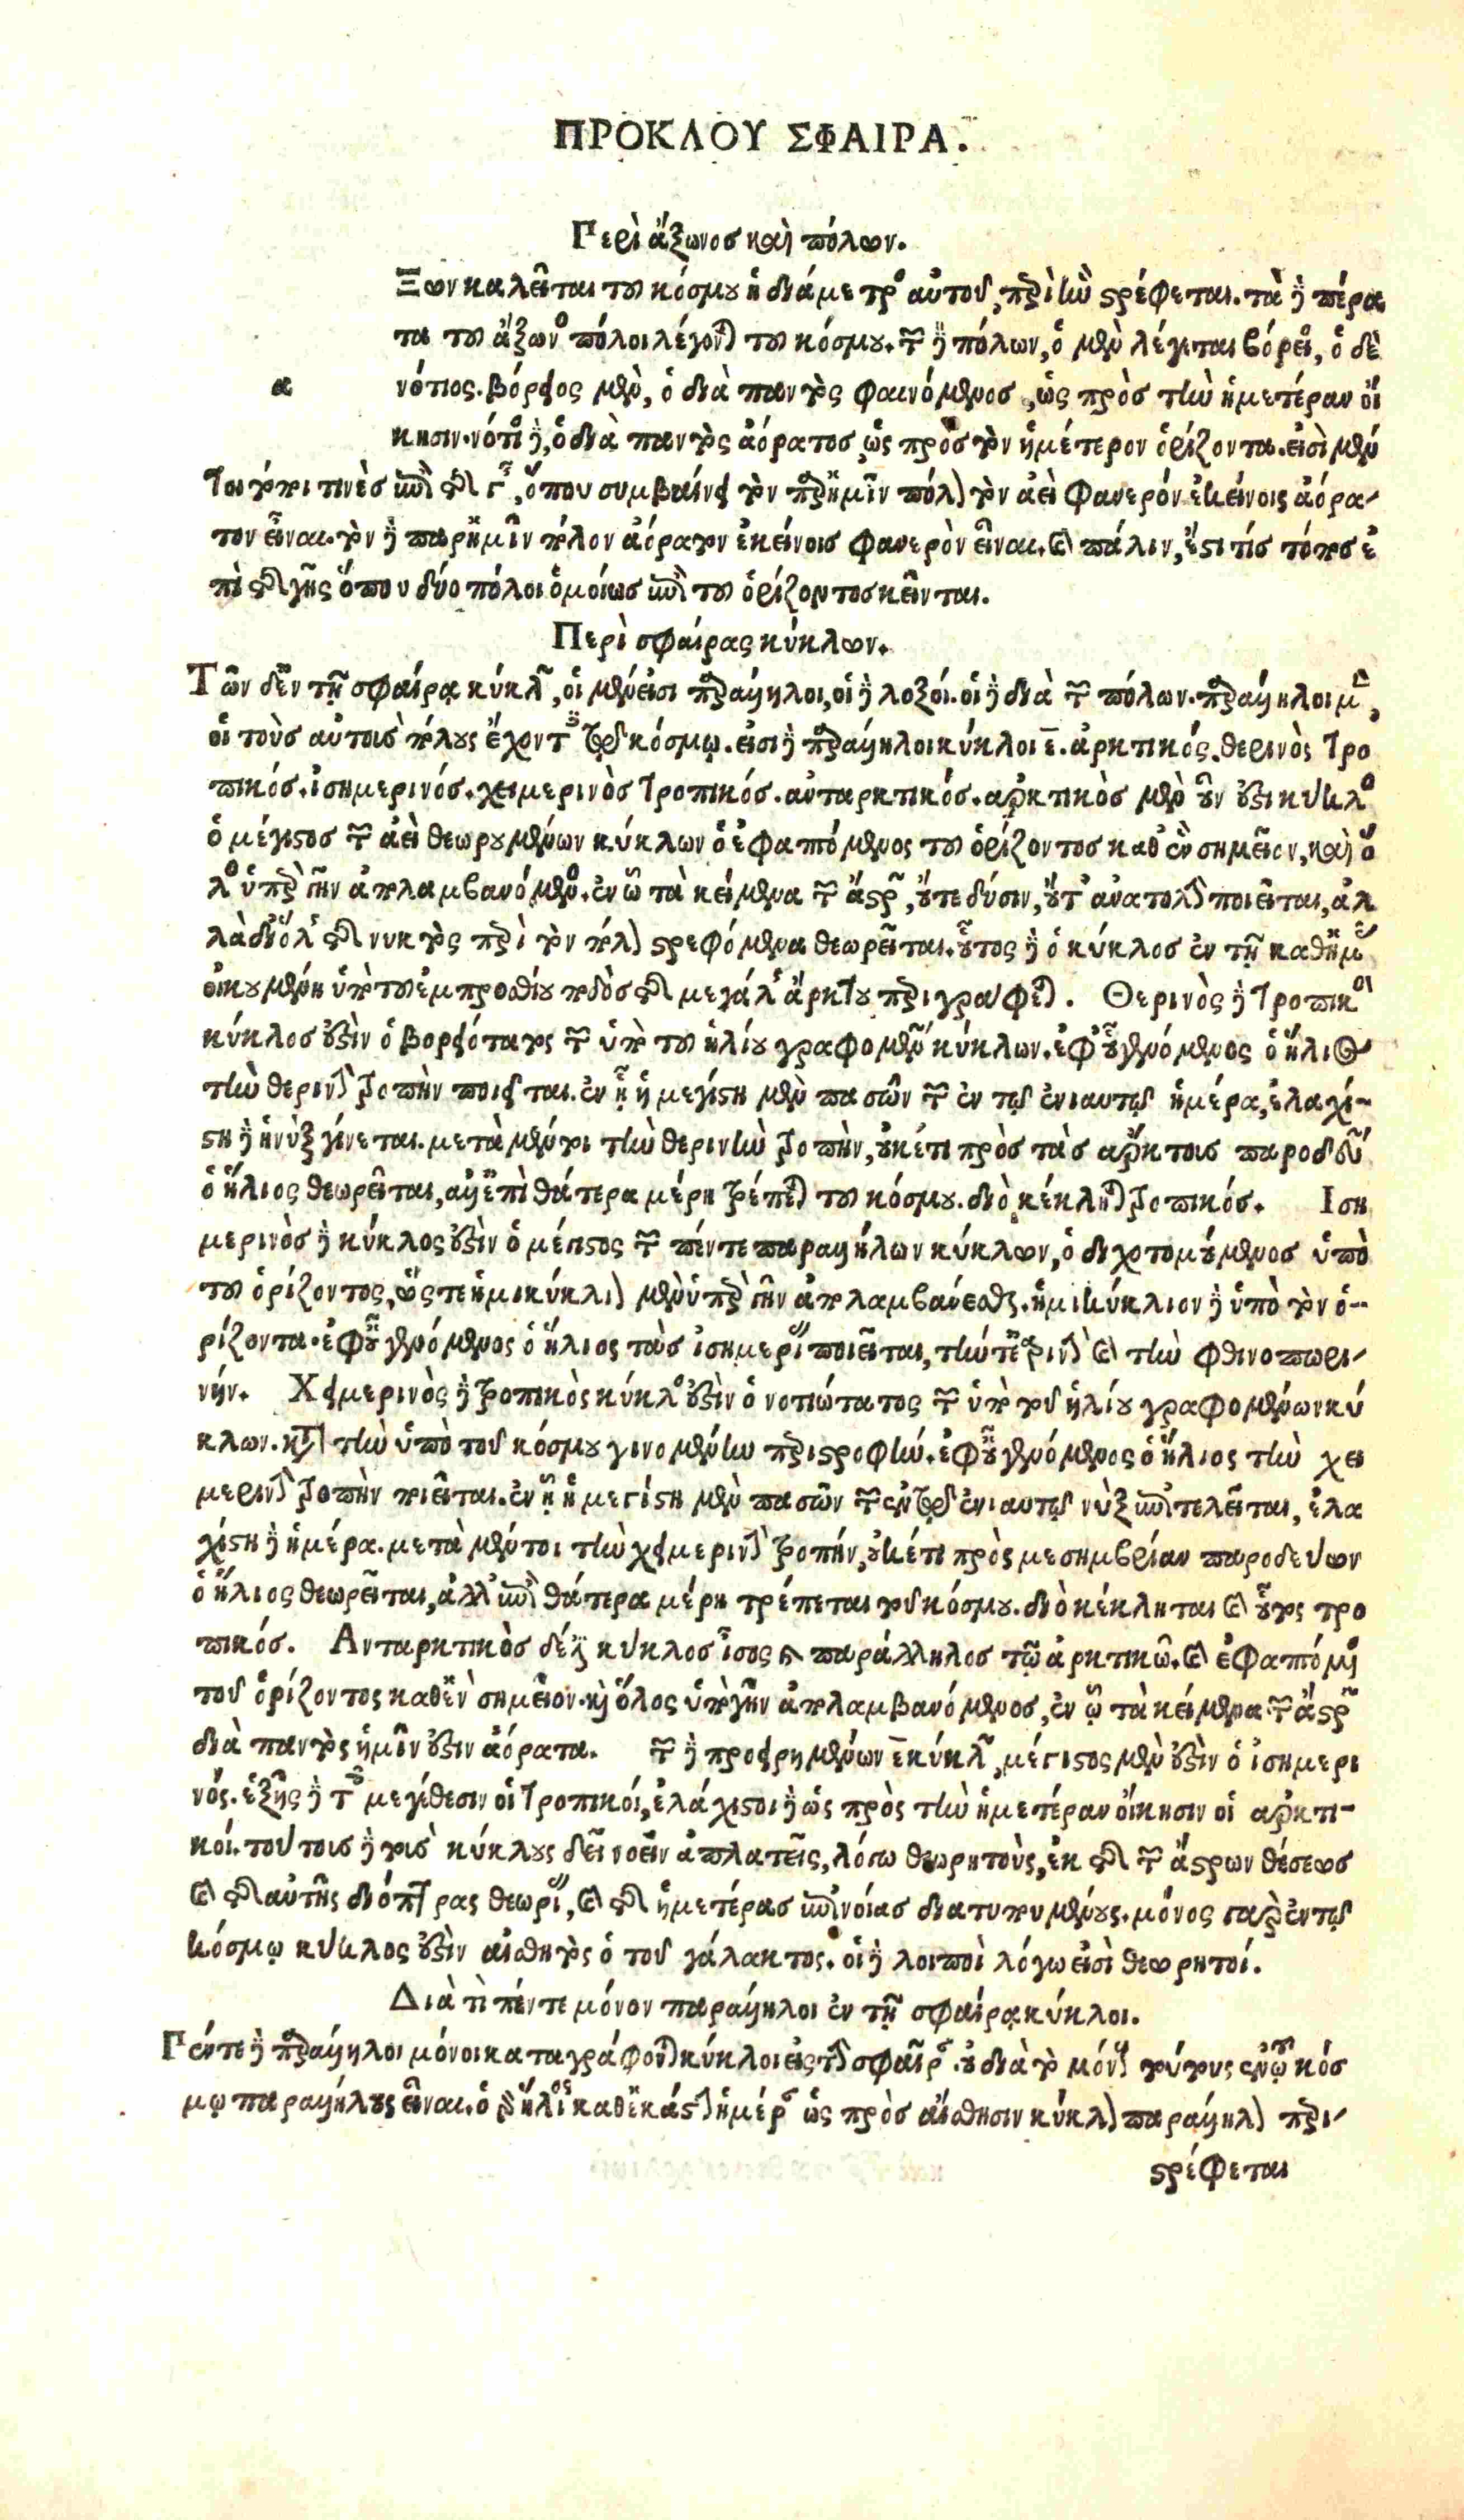 ΠΡΟΚΛΟΥ ΣΦΑΙΡΑ.
Περὶ ἄξωνοσ καὶ πόλων.
Ξων καλεῖται τοῦ κόσμου ἡ διάμετρος αὐτοῦ, περὶ ἣν στρέφεται. τὰ δὲ πέρα
τα τοῦ ἄξωνος πόλοι λέγονται τοῦ κόσμου. τῶν δὲ πόλων, ὁ μὲν λέγεται βόρειος, ὁ δὲ
α νότιος. βόρειος μὲν, ὁ διὰ παντὸς φαινόμενοσ, ὡς πρὸσ τὴν ἡμετέραν οἴ
κησιν. νότιος δὲ, ὁ διὰ παντὸς ἀόρατοσ, ὡς πρὸσ τὸν ἡμέτερον ὁρίζοντα. εἰσὶ μέν
τοι τόποι τινὲσ ἐπὶ τῆς γῆς, ὅπου συμβαίνει τὸν παρ' ἡμῖν πόλον τὸν ἀεὶ φανερόν ἐκείνοις ἀόρα-
τον εἶναι. τὸν δὲ παρ' ἡμῖν πόλον ἀόρατον ἐκείνοισ φανερὸν εἶναι. καὶ πάλιν, ἔστι τίσ τόποσ ἐ
πὶ τῆς γῆς ὅπου δύο πόλοι ὁμοίωσ ἐπὶ τοῦ ὁρίζοντοσ κεῖνται.
Περὶ σφαίρας κύκλων.
Τῶν δὲ ἐν τῇ σφαίρᾳ κύκλων, οἱ μέν εἰσι παράλληλοι, οἱ δὲ λοξοί. οἱ δὲ διὰ τῶν πόλων. παράλληλοι μὲν,
οἱ τοὺσ αὐτοὺσ πόλους ἔχοντες τῷ κόσμῳ. εἰσι δὲ παράλληλοι κύκλοι ε. ἀρκτικός. θερινὸς τρο
πικός. ἰσημερινός. χειμερινὸσ τροπικός. ἀνταρκτικός. ἀρκτικὸσ μὲν οὖν ἐστι κύκλος
ὁ μέγιστοσ τῶν ἀεὶ θεωρουμένων κύκλων ὁ ἐφαπτόμενος τοῦ ὁρίζοντοσ καθ' ἓν σημεῖον, καὶ ὅ
λος ὑπὲρ γῆν ἀπολαμβανόμενος. ἐν ᾧ τὰ κείμενα τῶν ἄστρων, οὔτε δύσιν, οὔτε ἀνατολὴν ποιεῖται, ἀλ
λὰ δι' ὅλης τῆς νυκτὸς περὶ τὸν πόλον στρεφόμενα θεωρεῖται. οὗτος δὲ ὁ κύκλοσ ἐν τῇ καθ' ἡμᾶς
οἰκουμένῃ ὑπὸ τοῦ ἐμπροσθίου ποδὸσ τῆς μεγάλης ἄρκτου περιγράφεται. Θερινὸς δὲ τροπικὸς
κύκλοσ ἐστὶν ὁ βορειότατος τῶν ὑπὸ τοῦ ἡλίου γραφομένων κύκλων. ἐφ' οὗ γενόμενος ὁ ἥλιος
τὴν θερινὴν τροπὴν ποιεῖται. ἐν ᾗ ἡ μεγίστη μὲν πασῶν τῶν ἐν τῷ ἐνιαυτῷ ἡμέρα, ἐλαχί-
στη δὲ ἡ νὺξ γίνεται. μετὰ μέντοι τὴν θερινὴν τροπὴν, οὐκέτι πρὸς τὰσ ἄρκτους παροδεύων
ὁ ἥλιος θεωρεῖται, ἀλλ' ἐπὶ θάτερα μέρη τρέπεται τοῦ κόσμου. διὸ κέκληται τροπικόσ. Ιση
μερινὸσ δὲ κύκλος ἐστὶν ὁ μέγιστος τῶν πέντε παραλλήλων κύκλων, ὁ διχοτομούμενοσ ὑπὸ
τοῦ ὁρίζοντος, ὥστε ἡμικύκλιον μὲν ὑπὲρ γῆν ἀπολαμβάνεσθαι. ἡμικύκλιον δὲ ὑπὸ τὸν ὁ-
ρίζοντα. ἐφ' οὗ γενόμενος ὁ ἥλιος τὰσ ἰσημερίας ποιεῖται, τήν τε ἐαρινὴν καὶ τὴν φθινοπωρι-
νήν. Χειμερινὸς δὲ τροπικὸς κύκλος ἐστὶν ὁ νοτιώτατος τῶν ὑπὸ τοῦ ἡλίου γραφομένων κύ
κλων. κατὰ τὴν ὑπὸ τοῦ κόσμου γινομένην περιστροφήν. ἐφ' οὗ γενόμενος ὁ ἥλιος τὴν χει
μερινὴν τροπὴν ποιεῖται. ἐν ᾗ ἡ μεγίστη μὲν πασῶν τῶν ἐν τῷ ἐνιαυτῷ νὺξ ἐπιτελεῖται, ἐλα
χίστη δὲ ἡμέρα. μετὰ μέντοι τὴν χειμερινὴν τροπήν, οὐκέτι πρὸς μεσημβρίαν παροδεύων
ὁ ἥλιος θεωρεῖται, ἀλλ' ἐπὶ θάτερα μέρη τρέπεται τοῦ κόσμου. διὸ κέκληται καὶ οὗτος τρο
πικόσ. Ανταρκτικὸσ δέ κύκλοσ ἴσος καὶ παράλληλοσ τῷ ἀρκτικῷ. καὶ ἐφαπτόμενος
τοῦ ὁρίζοντος καθ' ἓν σημεῖον. καὶ ὅλος ὑπὸ γῆν ἀπολαμβανόμενοσ, ἐν ᾧ τὰ κείμενα τῶν ἄστρων
διὰ παντὸς ἡμῖν ἐστιν ἀόρατα. τῶν δὲ προειρημένων ε κύκλων, μέγιστος μὲν ἐστὶν ὁ ἰσημερι
νός. ἑξῆς δὲ τοῖς μεγέθεσιν οἱ τροπικοί, ἐλάχιστοι δὲ ὡς πρὸς τὴν ἡμετέραν οἴκησιν οἱ ἀρκτι-
κοί. τούτους δὲ τοὺς κύκλους δεῖ νοεῖν ἀπλατεῖς, λόγω θεωρητοὺς, ἐκ τῆς τῶν ἄστρων θέσεωσ
καὶ τῆς αὐτῆς διόπτρας θεωρίας, καὶ τῆς ἡμετέρασ ἐπινοίασ διατυπουμένους. μόνος γὰρ ἐν τῷ
κόσμῳ κύκλος ἐστὶν αἰσθητὸς ὁ τοῦ γάλακτος. οἱ δὲ λοιποὶ λόγω εἰσὶ θεωρητοί.
Διὰ τὶ πέντε μόνον παράλληλοι ἐν τῇ σφαίρᾳ κύκλοι.
Πέντε δὲ παράλληλοι μόνοι καταγράφονται κύκλοι εἰς τὴν σφαῖραν. οὐ διὰ τὸ μόνους τούτους ἐν τῷ κόσ
μῳ παραλλήλους εἶναι. ὁ γὰρ ἥλιος καθ' ἑκάστην ἡμέραν ὡς πρὸσ αἴσθησιν κύκλον παράλληλον περι-
στρέφεται